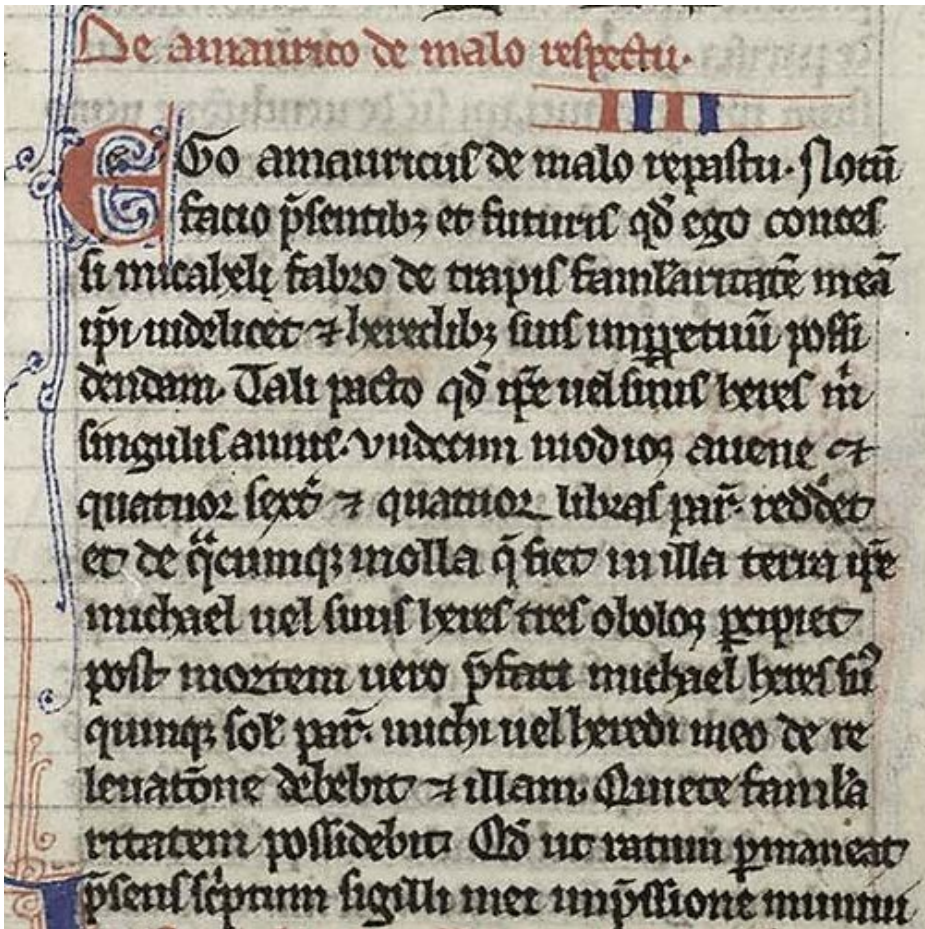 De amaurico de malo respectu.
IIII
EGo amauricus de malo repastu. Notū
facio p̄sentibꝫ et futuris qd̄ ego conces
si micaheli fabro de trapis famil'aritatē meā
ip̄i uidelicet ⁊ heredibꝫ suis imꝑpetuū possi
dendam. Tali pacto qd̄ ip̄e uel suus heres m̄
singulis annis. vndecim modioꝝ auene et
quatuor sext̄ ⁊ quatuor libras par̄. reddet
et de q̄cumqꝫ molla q̄ fiet in illa terra ip̄e
michael uel suus heres tres oboloꝝ ꝑcipiet
post mortem uero p̄fati michael heres suꝰ
quinqꝫ sol' par̄. michi uel heredi meo de re
leuatōne debebit ⁊ illam. Quiete famil'a
ritatem possidebit. Qd̄ ut ratum ꝑmaneat
p̄sens sc'ptum sigilli mei imp̄ssione muniui